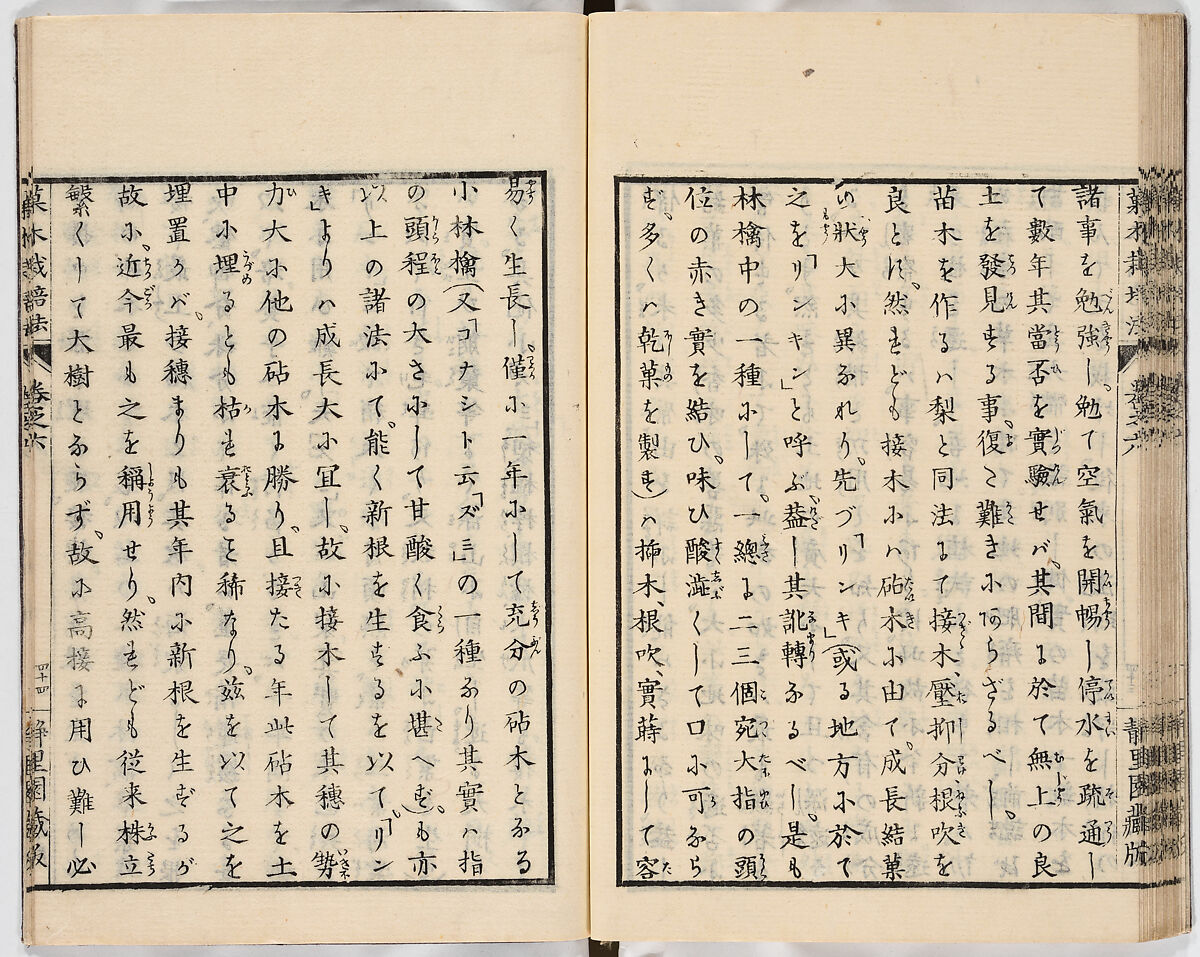 菓木栽培法 卷之六 靜里園藏版
諸事を勉強し、勉て空氣を開暢し停水を疏通し
て數年其當否を實驗せバ、其間に於て無上の良
土を發見する事復た難きにあらざるべし。
苗木を作るハ梨と同法にて接木、壓抑分根吹を
良とす、然れども接木にハ砧木に由て、成長結菓
の狀大に異なれり、先づ「リンキ」(或る地方に於て
之を「リンキン」と呼ぶ蓋し其訛轉なるべし、是も
林檎中の一種にして、一總に二三個宛大指の頭
位の赤き實を結ひ、味ひ酸澁くして口に可なら
ず、多くハ乾菓を製す)ハ揷木、根吹、實蒔にして容
易く生長し、僅に一年にして充分の砧木となる
小林檎(又「コナシ」ト云「ズミ」の一種なり其實ハ指
の頭程の大さにして甘酸く食ふに堪へず、)も亦
以上の諸法にて、能く新根を生するを以て、「リン
キ」よりハ成長大に宜し、故に接木して其穗の勢
力大に他の砧木に勝り、且接たる年此砧木を土
中に埋るとも枯れ衰ると稀なり、茲を以て之を
埋置かバ、接穗よりも其年内に新根を生ずるが
故に、近今最も之を稱用せり、然れども従来株立
繁くして大樹とならず、故に高接に用ひ難し必
菓木栽培法 卷之六 四十四 靜里園藏版